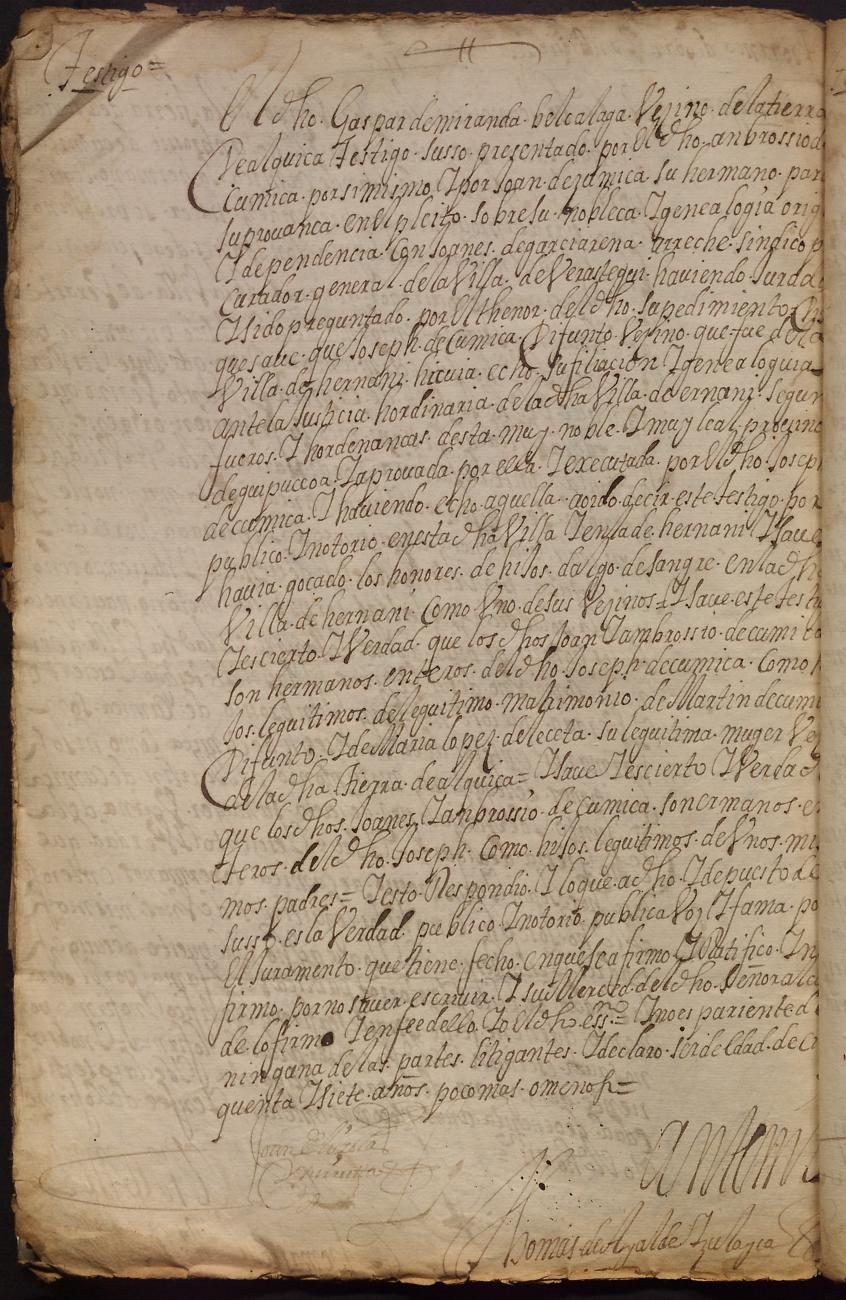 Testigo=
El dho. Gaspar de miranda. belcalaga. Vezino. de la tierra
De alquiça Testigo. susso. presentado. por El dho. anbrossio d
çumica. por simismo. I por Joan. de zumica su hermano. par
su provança. en El pleito. sobre su. nobleça. I genealogia orig
I dependencia. Con Joanes. de garciarena. arreche. sindico p
Curador. general. de la Villa. de Verastegui. haviendo. Jurda
I sido preguntado. por El thenor. del dho. su pedimiento. Di
que save. que Joseph. de Çumica. Difunto. Vezino. que fue de la
Villa. de hernani. hicuia. echo. su filiacion I genealoguia
ante la Justicia. hordinaria. de la dha Villa. de ernani. segun
fueros. I hordenancas. desta. muy. noble. I muy leal. provinc
de guipuccoa. I aprovada. por ella. I executada. por El dho. Josep
de cumica. I haviendo. echo. aquella. aoido. decir. este testigo. por
publico. I notorio. en esta dha Villa I en la de. hernani I save
havia. gocado. los honores. de hijos. dalgo. de sangre. en la dh
Villa. de hernani. Como Vno. de sus Vezinos I save. este tes
I es cierto. I Verdad. que los dhos. Joan I ambrossio. de cumica
son hermanos. enteros. del dho. Joseph. de cumica. Como h
Jos. leguitimos. de leguitimo. matrimonio. de Martin de cumi
Difunto I de Maria lopez. de leceta. su leguitima. muger Ve
de la dha tierra. de alquiça= I save I es cierto I Verdad
que los dhos. Joanes I ambrossio. de cumica. son ermanos. en
teros. del dho. Joseph. Como. hijos. leguitimos. de Vnos. mis
mos. padres= I esto. Respondio. I lo que. a dho. I depuesto de
susso. es la Verdad. publico. I notorio. publica Voz I fama. po
El Juramento. que tiene. fecho. en que se afirmo I Ratifico. I n
firmo. por no saver. escrivir. I su Merced. del dho. Señor al
de. lo firmo I en fee dello. Io El dho. ess.no= I no es pariente d
ninguna de las. partes. litigantes. I declaro. ser de Edad. de ci
quenta I siete. años. poco mas. o menos=
antemi
Thomas de